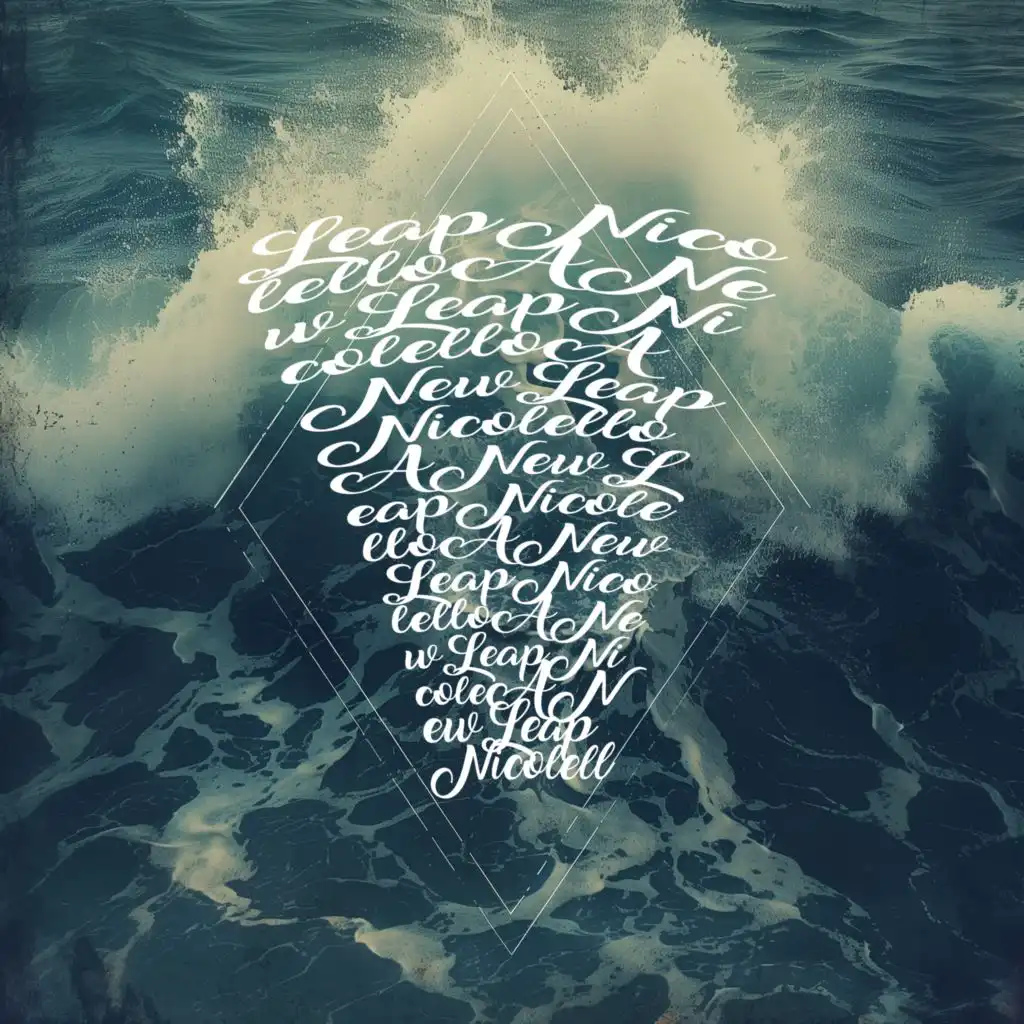 Leap Nico
lelloCA Ne
w Leap Ni
colelloCA
New Leap
Nicolello
A New L
eap Nicole
lloCA New
Leap Nico
lelloCA Ne
w Leap Ni
colecA N
ew Leap
Nicolell